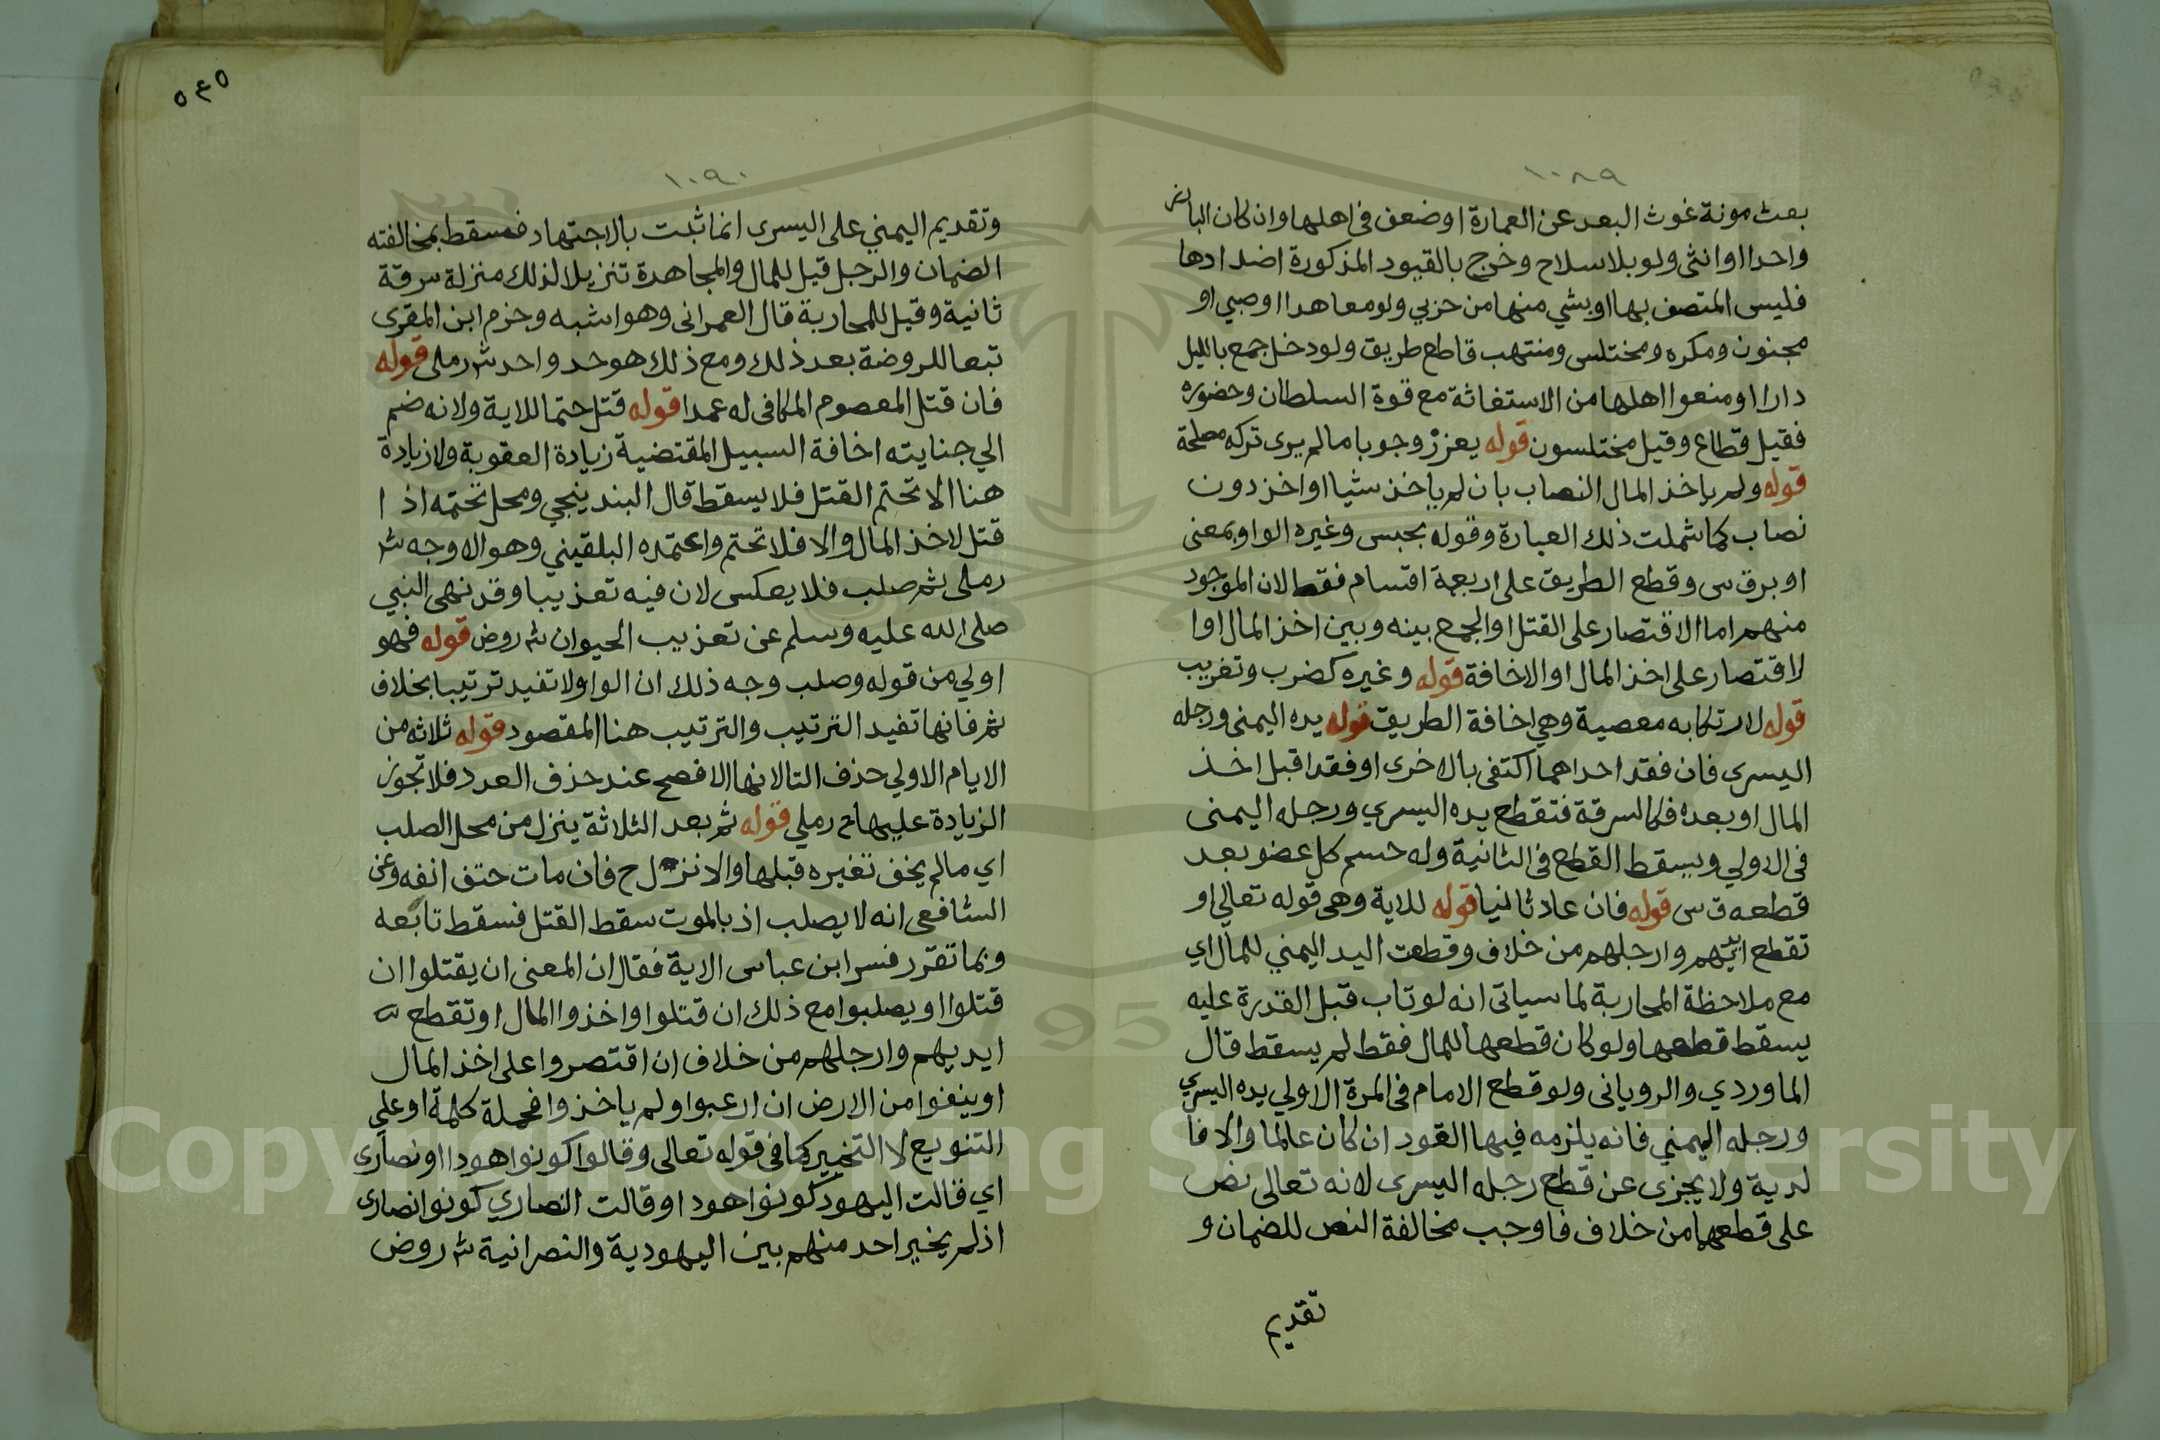 ١٠٨٩
بعث مونة غوث البعد عن العمارة او ضعف في اهلها وان كان البارز
واحدا او انثى ولو بلا سلاح وخرج بالقيود المذكورة اضدادها
فليس المتصف بها او بشي منها من حربي ولو معاهدا او صبي او
مجنون ومكره ومختلس ومنتهب قاطع طريق ولو دخل جمع بالليل
دارا ومنعوا اهلها من الاستغاثة مع قوة السلطان وحضوره
فقيل قطاع وقيل مختلسون قوله يعزر وجوبا مالم يرى تركه مصلحة
قوله ولم ياخذ المال النصاب بان لم ياخذ شيا او اخذ دون
نصاب كما شملت ذلك العبارة وقوله بحبس وغيره الواو بمعنى
او برق س وقطع الطريق على اربعة اقسام فقط لان الموجود
منهم اما الاقتصار على القتل او الجمع بينه وبين اخذ المال او ا
لاقتصار على اخذ المال او الاخافة قوله وغيره كضرب وتغريب
قوله لارتكابه معصية وهي اخافة الطريق قوله يده اليمنى ورجله
اليسرى فان فقد احداهما اكتفى بالاخرى او فقدا قبل اخذ
المال او بعده فكالسرقة فتقطع يده اليسري ورجله اليمنى
في الاولي ويسقط القطع في الثانية وله حسم كل عضو بعد
قطعه ق س قوله فان عاد ثانيا قوله للاية وهي قوله تعالي او
تقطع ايديهم وارجلهم من خلاف وقطعت اليد اليمني للمال اي
مع ملاحظة المحاربة لما سياتي انه لو تاب قبل القدرة عليه
يسقط قطعها ولو كان قطعها للمال فقط لم يسقط قال
الماوردي والروياني ولو قطع الامام في المرة الاولي يده اليسري
ورجله اليمني فانه يلزمه فيها القود ان كان عالما والا فا
لدية ولا يجزى عن قطع رجله اليسرى لانه تعالى نص
على قطعهما من خلاف فاوجب مخالفة النص للضمان و
تقديم
٥٤٥
١٠٩٠
وتقديم اليمني على اليسرى انما ثبت بالاجتهاد فسقط بمخالفته
الضمان والرجل قيل للمال والمجاهدة تنزيلا لذلك منزلة سرقة
ثانية وقيل للمحاربة قال العمراني وهو اشبه وجزم ابن المقرى
تبعا للروضة بعد ذلك ومع ذلك هو حد واحد ش رملى قوله
فان قتل المعصوم المكافى له عمدا قوله قتل حتما للاية ولانه ضم
الي جنايته اخافة السبيل المقتضية زيادة العقوبة ولا زيادة
هنا الا تحتم القتل فلا يسقط قال البندينجي ومحل تحتمه اذ ا
قتل لاخذ المال والا فلا تحتم واعتمده البلقيني وهو الاوجه ش
رملى ثم صلب فلا يعكس لان فيه تعذيبا وقد نهى النبي
صلى الله عليه وسلم عن تعذيب الحيوان ش روض قوله فهو
اولي من قوله وصلب وجه ذلك ان الواو لا تفيد ترتيبا بخلاف
ثم فانها تفيد الترتيب والترتيب هنا المقصود قوله ثلاثه من
الايام الاولي حذف التا لانها الافصح عند حذف العدد فلا تجوز
الزيادة عليها رملي قوله ثم بعد الثلاثة ينزل من محل الصلب
اي مالم يخف تغيره قبلها والا نزل ح فان مات حتف انفه وعن
الشافعى انه لا يصلب اذ بالموت سقط القتل فسقط تابعه
وبما تقرر فسر ابن عباس الاية فقال ان المعنى ان يقتلوا ان
قتلوا او يصلبوا مع ذلك ان قتلوا واخذوا المال او تقطع
ايديهم وارجلهم من خلاف ان اقتصروا على اخذ المال
او ينفوا من الارض ان ارعبوا ولم ياخذوا فحملة كلمة او على
التنويع لا التخيير كما في قوله تعالى وقالوا كونوا هودا او نصارى
اي قالت اليهود كونوا هودا وقالت النصاري كونوا نصارى
اذ لم يخير احد منهم بين اليهودية والنصرانية ش روض
Copyright © King Saud University
1957